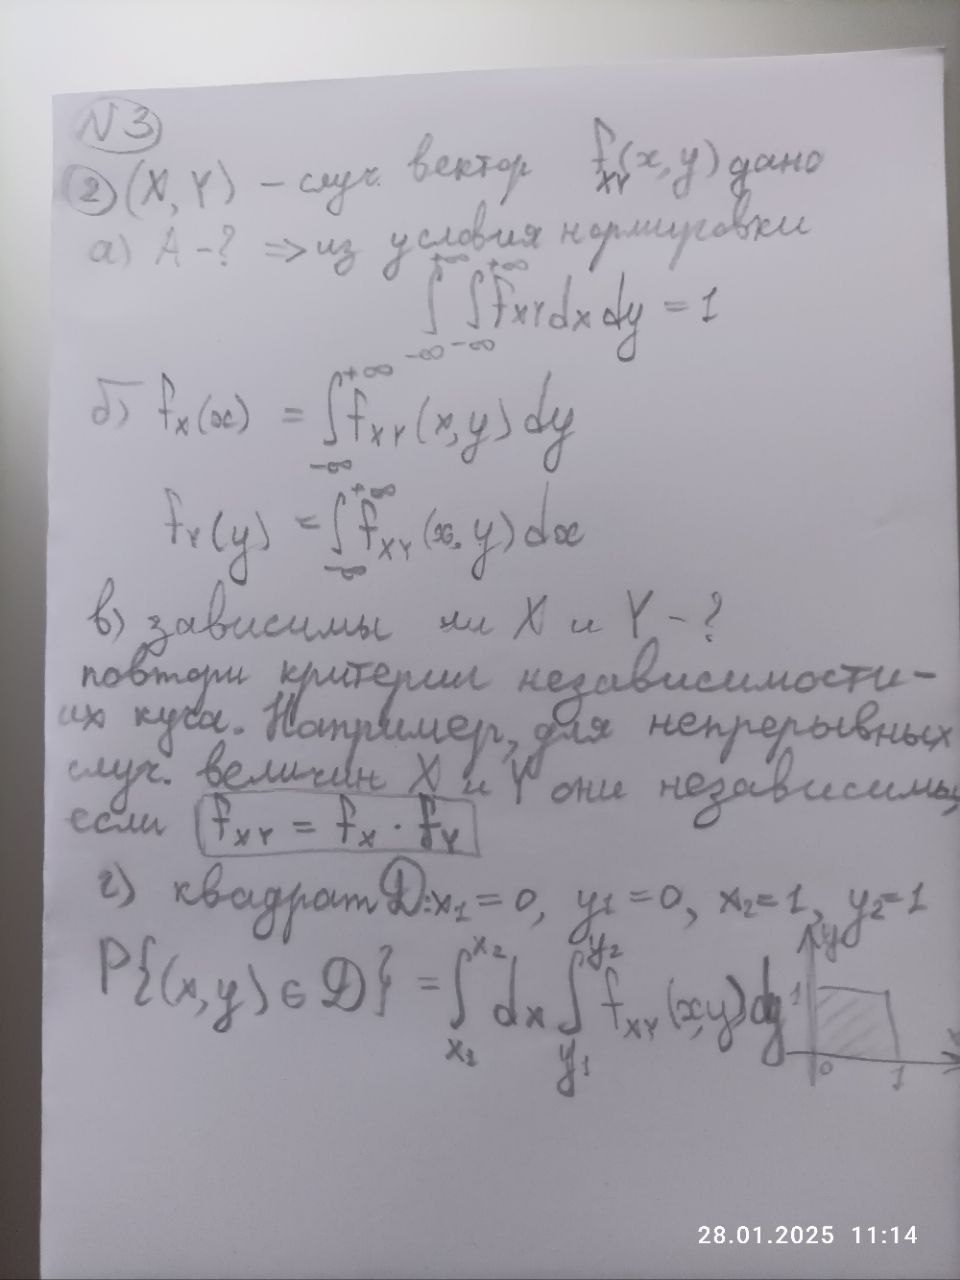 N3
2) (X, Y) – случ. вектор f_XY(x, y) дано
а) A - ? => из условия нормировки
∫_{-∞}^{+∞} ∫_{-∞}^{+∞} f_XY dx dy = 1
б) f_X(x) = ∫_{-∞}^{+∞} f_XY(x, y) dy
f_Y(y) = ∫_{-∞}^{+∞} f_XY(x, y) dx
в) зависимы ли X и Y - ?
повтори критерии независимости –
их куча. Например, для непрерывных
случ. величин X и Y они независимы,
если f_XY = f_X · f_Y
г) квадрат D: x₁ = 0, y₁ = 0, x₂ = 1, y₂ = 1
P{(x, y) ∈ D} = ∫_{x₁}^{x₂} dx ∫_{y₁}^{y₂} f_XY(x, y) dy
y
1
0 1 x
28.01.2025 11:14